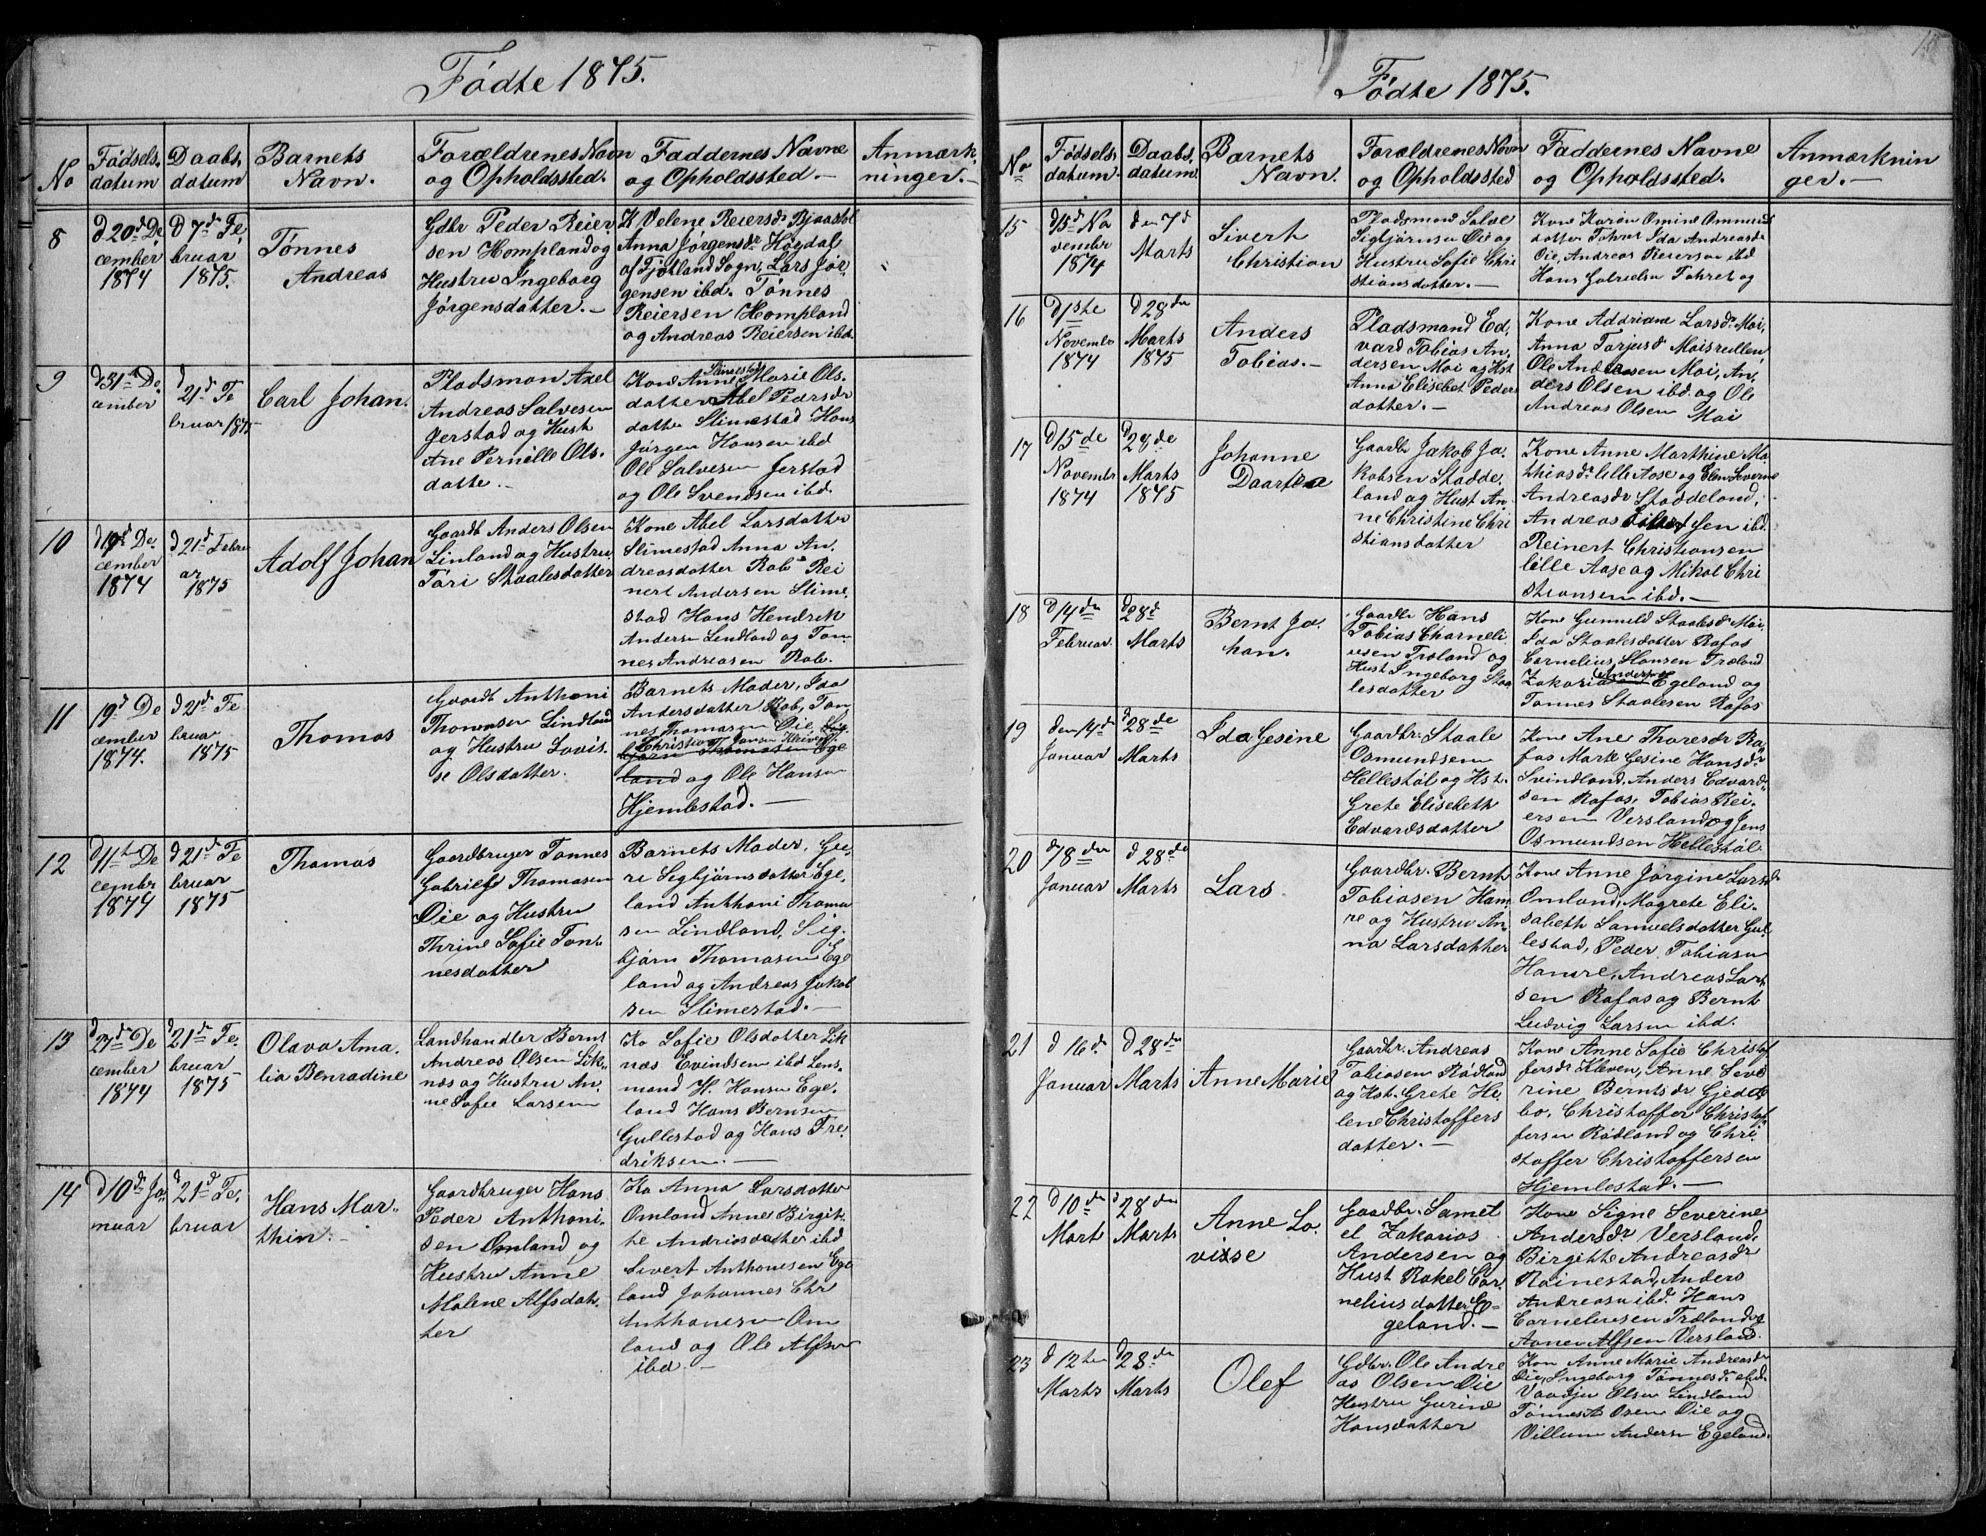 Fødte 1875.
No
Fødsels-
datum
Daabs,
datum
Barnets
Navn.
Forældrenes Navn
og Opholdssted.
Faddernes Navne
og Opholdssted. —
Anmærk-
ninger. —
8
d 20de De
cember
1874
d 7de Fe
bruar
1875.
Tønnes
Andreas
Gdbr Peder Reier
sen Hompland og
Hustru Ingeborg
Jørgensdatter. —
K Velene Reiersdr
Anna Jørgensdr Høgdal
af Fjotland Sogn, Lars Jør
gensen ibd. Tønnes
Reiersen Hompland
og Andreas Reiersen ibd.
9
d 31te De
cember
d
21de Fe
bruar 1875
Carl Johan.
Pladsman Axel
Andreas Salvesen
Jerstad og Hust
Ane Pernille Ols-
datte. —
Slimestad
Kone Anne Marie Ols-
datter Abel Pedersdr
datter Slimestad Hans
Jørgen Hansen ibd
Ole Salvesen Jerstad
og Ole Svendsen ibd.
10
d 19de De
cember
1874
d 21de Febru
ar
1875
Adolf Johan
Gaardb Anders Olsen
Linland og Hustru
Tori Staalesdatter
Kone Abel Larsdatter
Slimestad Anna An
dreasdatter Rob Rei
nert Andersen Slime,
stad Hans Hendrik
Andersen Lindland og Tøn-
nes Andreasen Rob.
11
19d De
cember
1874.
d 21de Fe
bruar
1875
Thomas
Gaardb Anthoni
Thomasen Lindland
og Hustru Lovis-
se Olsdatter.
Barnets Moder, Ida
Andersdatter Rob, Tøn
nes Thomasen Øie Sig-
Christian Jansen
bjørn Thomasen Ege
land og Ole Hansen
Hjemlestad. —
12
d 11te De
cember
1874
d 21de Fe
bruar
1875
Thomas
Gaardbruger Tønnes
Gabriel Thomasen
Øie og Hustru
Thrine Sofie Tøn-
nesdatter
Barnets Moder, Gu
ri Sigbjørnsdatter Ege,
land Anthoni Thoma
sen Lindland, Sig-
bjørn Thomasen Ege
land og Andreas Jakob
sen Slimestad. —
13
d
27de De
cember
1874
d
21de Fe
bruar
1875
Olava Ama-
lia Benradine
Landhandler Bernt
Andreas Olsen Lik-
næs og Hustru An-
ne Sofie Larsen
Ko Sofie Olsdatter Lik
næs Evindsen ibd Lens-
mand H. Hansen Ege-
land Hans Bernsen
Gullestad og Hans Fre,
driksen. —
14
d 10de Ja-
nuar
d
21de Fe,
bruar
Hans Mar-
thin. —
Gaardbruger Hans
Peder Anthoni-
sen Omland og
Hustru Anne
Malene Alfsdat-
ter
Ko Anna Larsdatter
Omland Anne Birgit-
te Andreasdatter ibd
Sivert Anthonisen Ege
land Johannes Chr
Anthonisen Om
land og Ole Alfsen
ibd. —
Fødte 1875.
No
Fødsels-
datum.
Daabs,
datum.
Barnets
Navn.
Forældrenes Navn
og Opholdssted
Faddernes Navne
og Opholdssted.
Anmærknin
ger. —
15
d 15de No
vember
1874
den 7d
Marts
Sivert
Christian
Pladsmand Salve
Sigbjørnsen Øie og
Hustru Sofie Chri
stiansdatter. —
Kone Karen Omine Ommund
datter Ida Andreasdr
Øie, Andreas Reiersen ibd
Hans Gabrielsen og
16
d 1ste
Novembr
1874
d 28de
Marts
1875
Anders
Tobias. —
Pladsmand Ed,
vard Tobias An,
dersen Moi og Hst
Anna Elisebet Peder
datter. —
Kone Addriane Larsdr Moi,
Anna Torjusdr Moisvellen,
Ole Andersen Moi, An,
ders Olsen ibd og Ole
Andreas Olsen Moi
17
d 15de
Novembr
1874
d 28de
Marts
1875
Johanne
Daartea
Gaardbr Jakob Ja,
kobsen Stadde,
land og Hust An,
ne Christine Chri
stiansdatter
Kone Anne Marthine Ma,
thiasdr lille Aase og Elen Severine
Andreasdr Staddeland,
Andreas ibd
Reinert Christiansen
lille Aase og Mikal Chri
stiansen ibd. —
18
d 14de
Februar
d
28d
Marts
Bernt Jo,
han.
Gaardbr Hans
Tobias Charneli
usen Træland og
Hust Ingeborg Staa
lesdatter
Kone Gunnild Staalesdr Moi,
Ida Staalesdatter Rafos
Cornelius Hansen Træland
Zakarias Andersen Egeland og
Tønnes Staalesen Rafos
19
den 14d
Januar
d
28de
Marts
Ida Gesine
Gaardbr. Staale
Osmundsen
Hellestøl og Hst.
Grete Elisebeth
Edvardsdatter
Kone Ane Thoresdr Ra,
fos Marte Gesine Hansdr
Svindland, Anders Edvard-
sen Rafos, Tobias Rei,
ersen Versland og Jens
Osmundsen Hellestøl.
20
d 78de
Januar
d 28de
Marts
Lars
Gaardbr. Bernt
Tobiasen Ham
re og Hustru An,
na Larsdatter
Kone Anne Jørgine Larsd
Omland, Magrete Eli-
sabeth Samuelsdatter Gul,
lestad, Peder Tobiasen
Hamre, Andreas Lar
sen Rafos og Bernt
Ludvig Larsen ibd. —
21
d 16de
Januar
d 28de
Marts
Anne Marie
Gaardbr. Andreas
Tobiasen Rødland
og Hst. Grete He
lene Christoffers
datter. —
Kone Anne Sofie Christof
fersdr Kleven, Anne Seve
rine Berntsdr Gjedde
bo, Christoffer Christof
fersen Rødland og Chri
stoffer Christoffersen
Hjemlestad. —
22
d 10de
Mart
d 28de
Marts
Anne Lo,
visse
Gaardbr. Samel
el Zakarias
Andersen og
Hust Rakel Cor
neliusdatter E-
geland. —
Kone Signe Severine
Andersdr Versland,
Birgitte Andreasdr
Rainestad, Anders
Andreasen ibd. Hans
Corneliusen Træland og
Aanen Alfsen Versland.
23
d 12te
Marts
d
28de
Marts
Olef
Gdbr. Ole Andre
as Olsen Øie
Hustru Gurine
Hansdatter
Kon Anne Marie Andreasdr
Øie, Ingeborg Tønnesdr ibd.
Olsen Lindland
Tønnes A Osen Øie og
Villum Andersen Egeland.